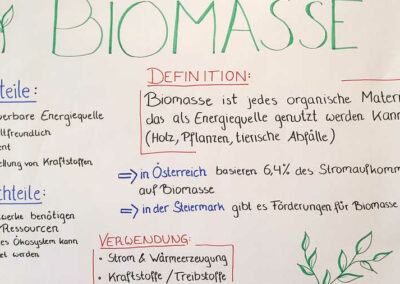 BIOMASSE
teile:
erbare Energiequelle
tfreundlich
ent
ellung von Kraftstoffen
chteile:
erke benötigen
Ressourcen
es Ökosystem kann
et werden
DEFINITION:
Biomasse ist jedes organische Mater
das als Energiequelle genutzt werden Kann
(Holz, Pflanzen, tierische Abfälle)
⇒ in Österreich basieren 6,4% des Stromaufkomm
auf Biomasse
⇒ in der Steiermark gibt es Förderungen für Biomasse
VERWENDUNG:
• Strom & Wärmeerzeugung
• Kraftstoffe / Treibstoffe